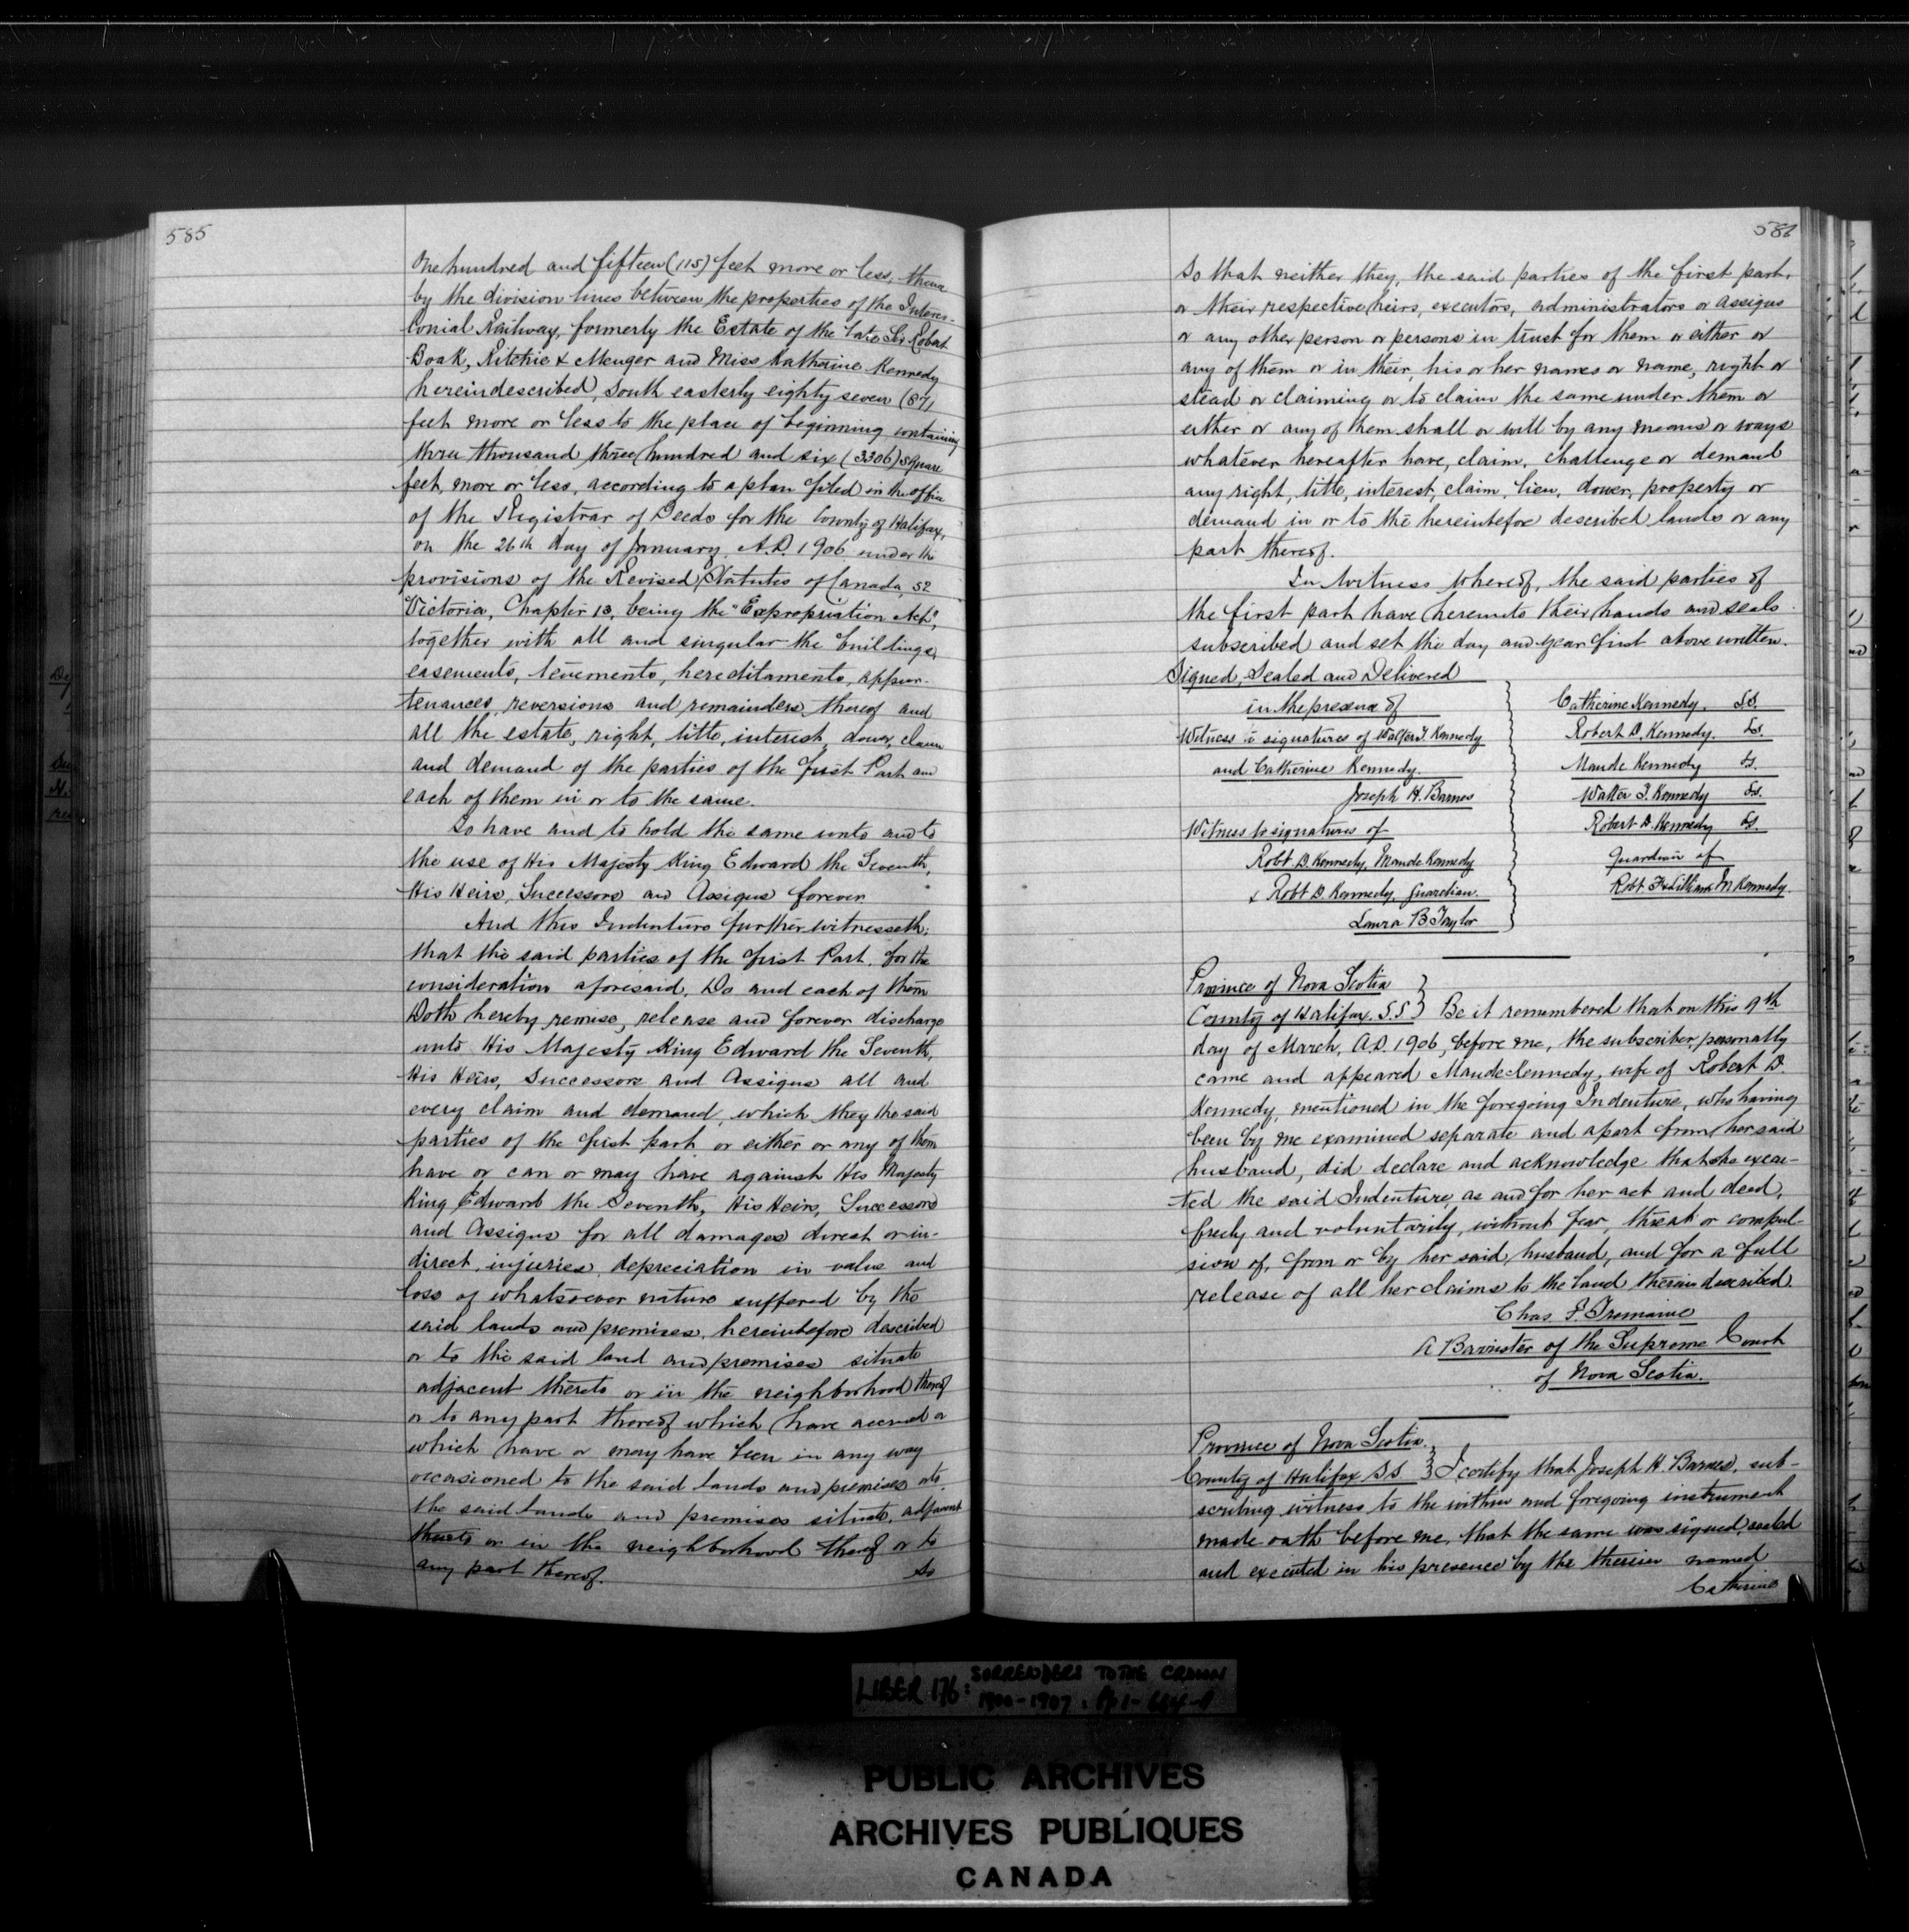 585
One hundred and fifteen (115) feet more or less, thence
by the division lines between the properties of the Interco-
lonial Railway, formerly the Estate of the late Sir Robert
Boak, Ritchie & Menger and Miss Katherine Kennedy
herein described, South easterly eighty seven (87)
feet more or less to the place of beginning containing
three thousand three hundred and six (3306) square
feet, more or less, according to a plan filed in the office
of the Registrar of Deeds for the County of Halifax,
on the 26th day of January, A.D. 1906 under the
provisions of the Revised Statutes of Canada, 52
Victoria, Chapter 13, being the "Expropriation Act",
together with all and singular the buildings,
easements, tenements, hereditaments, appur-
tenances, reversions and remainders thereof and
all the estate, right, title, interest, dower, claim
and demand of the parties of the First Part and
each of them in or to the same.
To have and to hold the same unto and to
the use of His Majesty King Edward the Seventh,
His Heirs, Successors and Assigns forever.
And this Indenture further witnesseth;
that the said parties of the first Part, for the
consideration aforesaid, Do and each of them
Doth hereby remise, release and forever discharge
unto His Majesty King Edward the Seventh,
His Heirs, Successors and Assigns all and
every claim and demand, which they the said
parties of the first part or either or any of them
have or can or may have against His Majesty
King Edward the Seventh, His Heirs, Successors
and Assigns for all damages direct or in-
direct, injuries, depreciation in value and
loss of whatsoever nature suffered by the
said lands and premises, hereinbefore described
or to the said land and premises situate
adjacent thereto or in the neighborhood thereof
or to any part thereof which have accrued or
which have or may have been in any way
occasioned to the said lands and premises or to
the said lands and premises situate, adjacent
thereto or in the neighborhood thereof or to
any part thereof.
So
586
So that neither they, the said parties of the first part,
or their respective heirs, executors, administrators or assigns
or any other person or persons in trust for them or either or
any of them or in their, his or her names or name, right or
stead or claiming or to claim the same under them or
either or any of them shall or will by any means or ways
whatever hereafter have, claim, challenge or demand
any right, title, interest, claim, lien, dower, property or
demand in or to the hereinbefore described lands or any
part thereof.
In Witness Whereof, the said parties of
the first part have hereunto their hands and seals
subscribed and set the day and year first above written.
Signed, Sealed and Delivered
in the presence of
Witness to signatures of Walter J. Kennedy
and Catherine Kennedy.
Joseph H. Barnes
Witness to signatures of
Robt D. Kennedy, Maude Kennedy
& Robt D. Kennedy, Guardian.
Laura B. Taylor
Catherine Kennedy. Ls.
Robert D. Kennedy. Ls.
Maude Kennedy Ls.
Walter J. Kennedy Ls.
Robert D. Kennedy Ls.
Guardian of
Robt. F. & Lillian M. Kennedy.
Province of Nova Scotia
County of Halifax. S.S. Be it remembered that on this 9th
day of March, A.D. 1906, before me, the subscriber, personally
came and appeared Maude Kennedy, wife of Robert D.
Kennedy, mentioned in the foregoing Indenture, who having
been by me examined separate and apart from her said
husband, did declare and acknowledge that she execu-
ted the said Indenture, as and for her act and deed,
freely and voluntarily, without fear, threat or compul-
sion of, from or by her said husband, and for a full
release of all her claims to the land therein described.
Chas. F. Tremaine
A Barrister of the Supreme Court
of Nova Scotia.
Province of Nova Scotia.
County of Halifax S.S. I certify that Joseph H. Barnes, sub-
scribing witness to the within and foregoing instrument
made oath before me, that the same was signed, sealed
and executed in his presence by the therein named
Catherine
LIBER 176: SURRENDERS TO THE CROWN
1900-1907:
PUBLIC ARCHIVES
ARCHIVES PUBLIQUES
CANADA